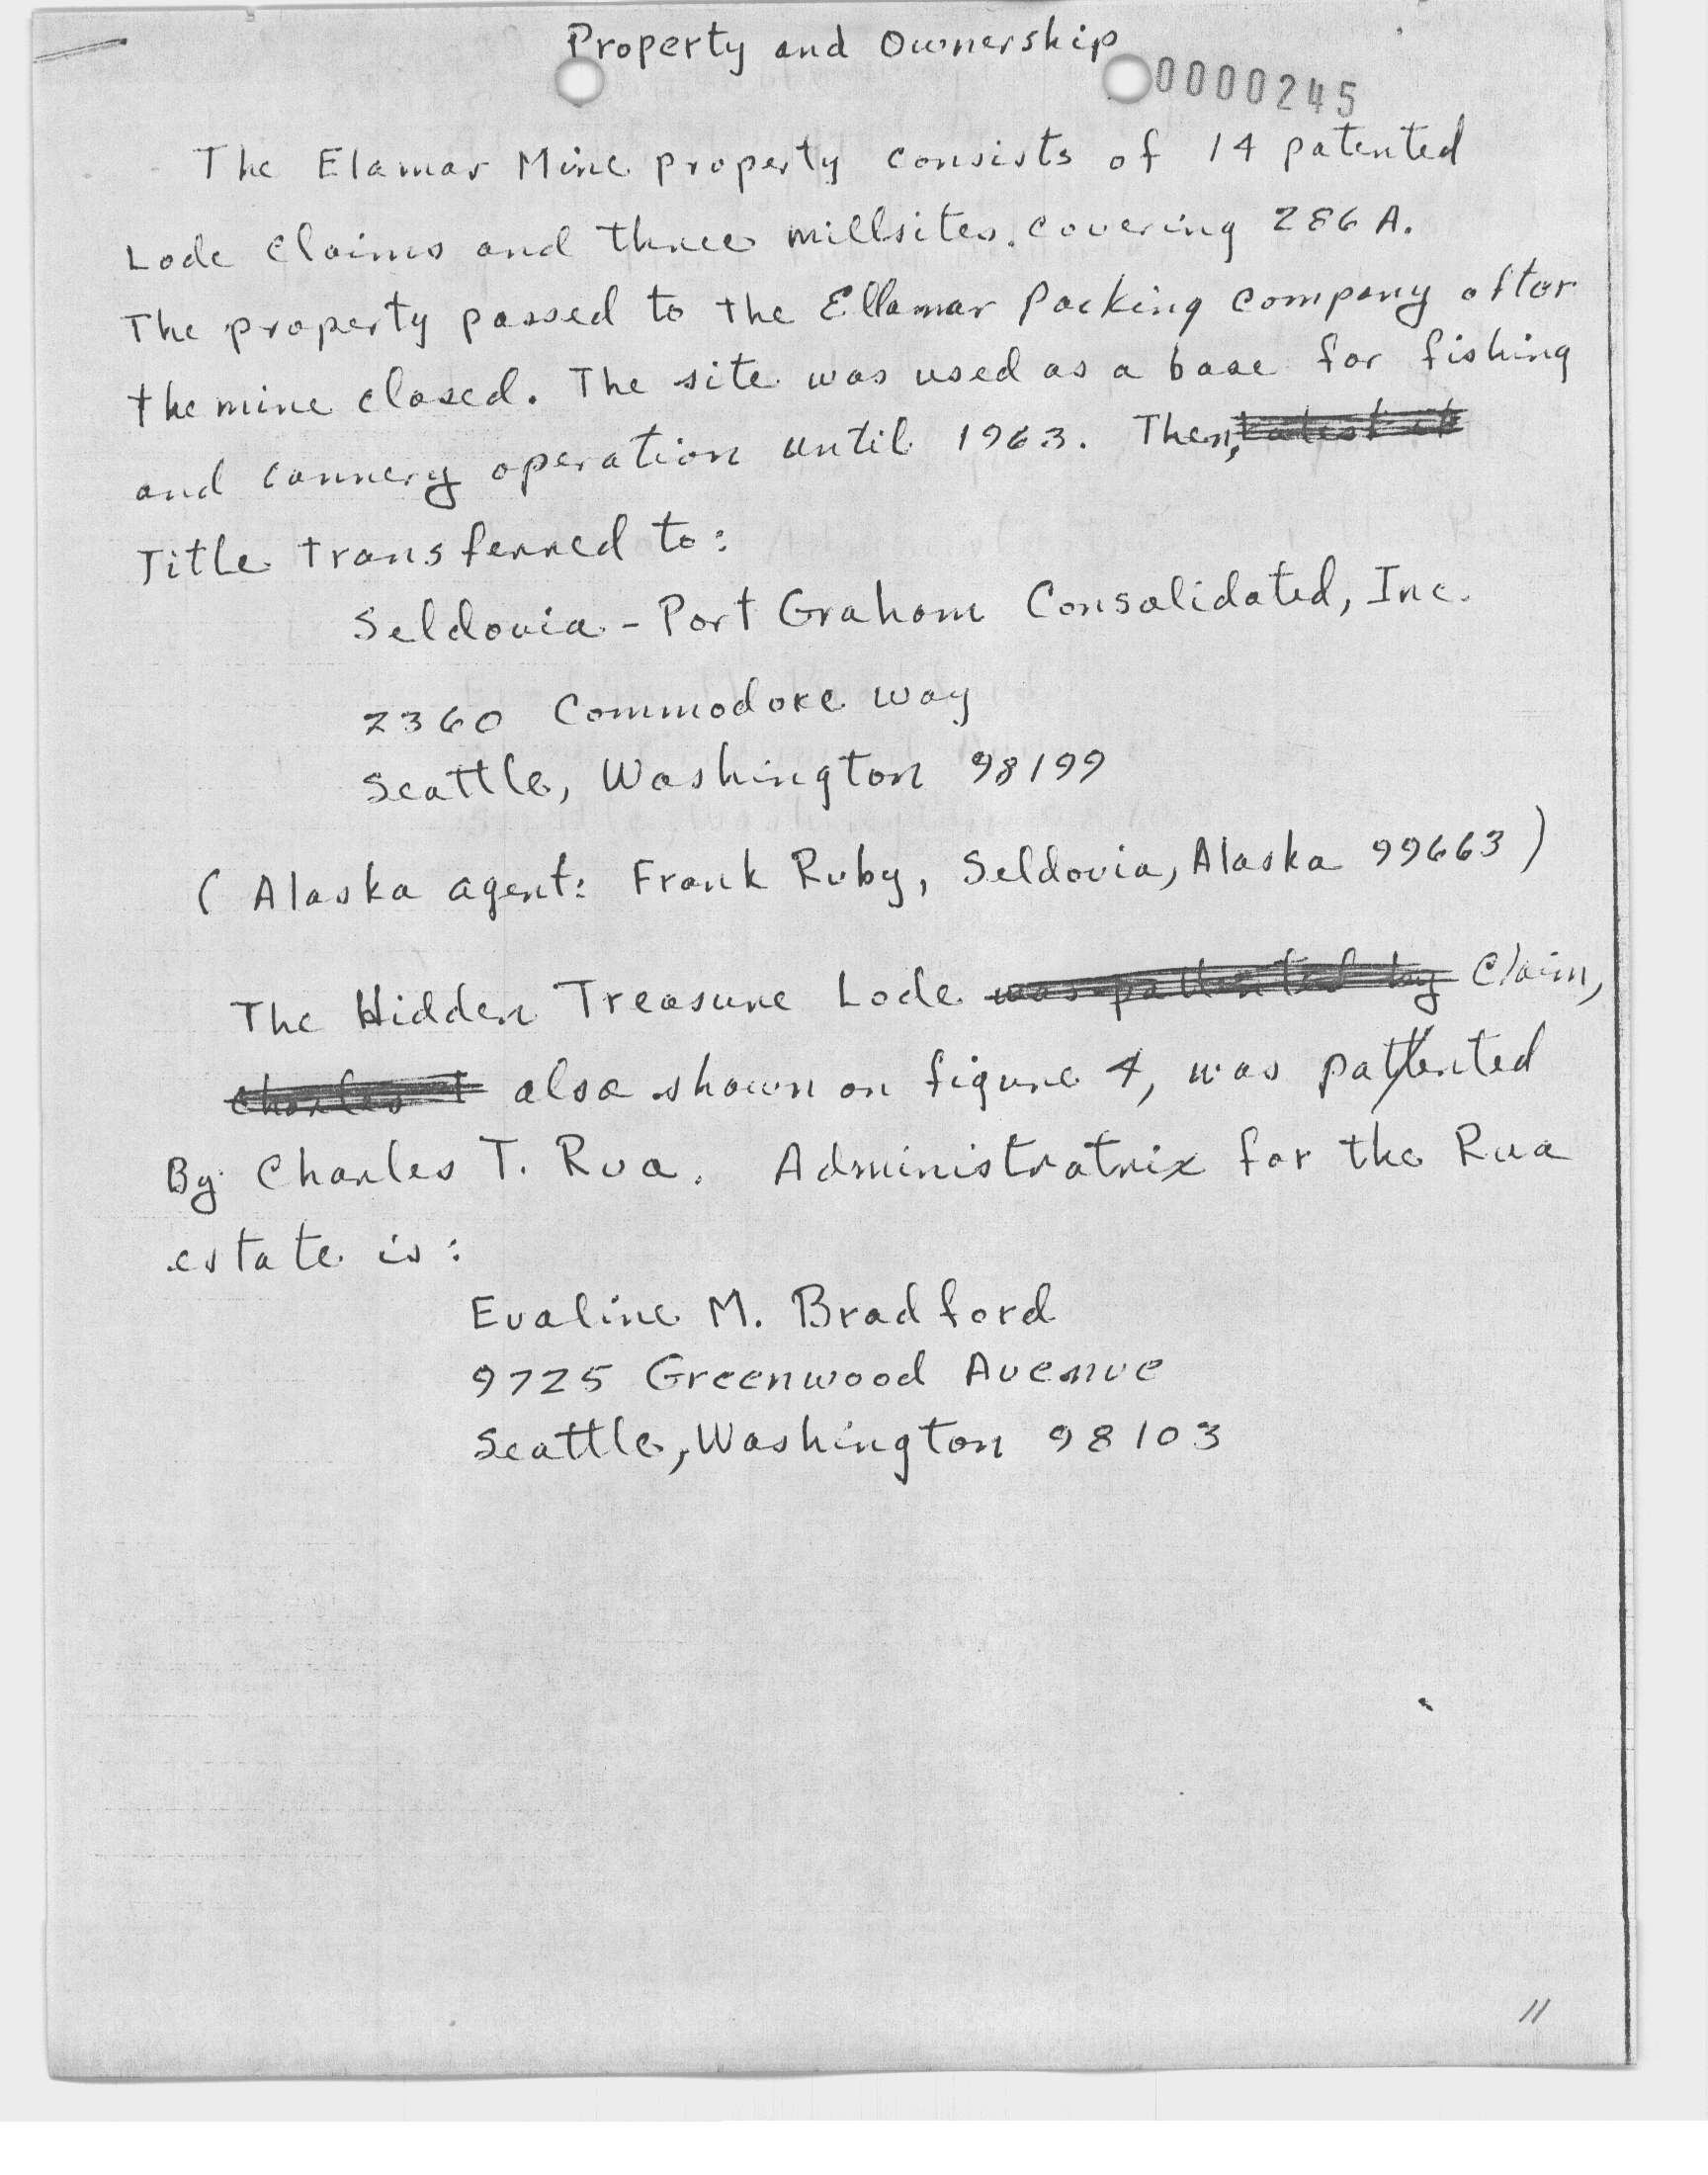 Property and Ownership
0000245
The Elamar Mine property consists of 14 patented
Lode Claims and three millsites. covering 286 A.
The property passed to the Ellamar Packing Company after
the mine closed. The site was used as a base for fishing
and cannery operation until 1963. Then,
Title transferred to:
Seldovia - Port Graham Consolidated, Inc.
2360 Commodore Way
Seattle, Washington 98199
( Alaska agent: Frank Ruby, Seldovia, Alaska 99663 )
The Hidden Treasure Lode was pattented by Claim,
Charles T also shown on figure 4, was patented
By Charles T. Rua. Administratrix for the Rua
estate is:
Evaline M. Bradford
9725 Greenwood Avenue
Seattle, Washington 98103
11